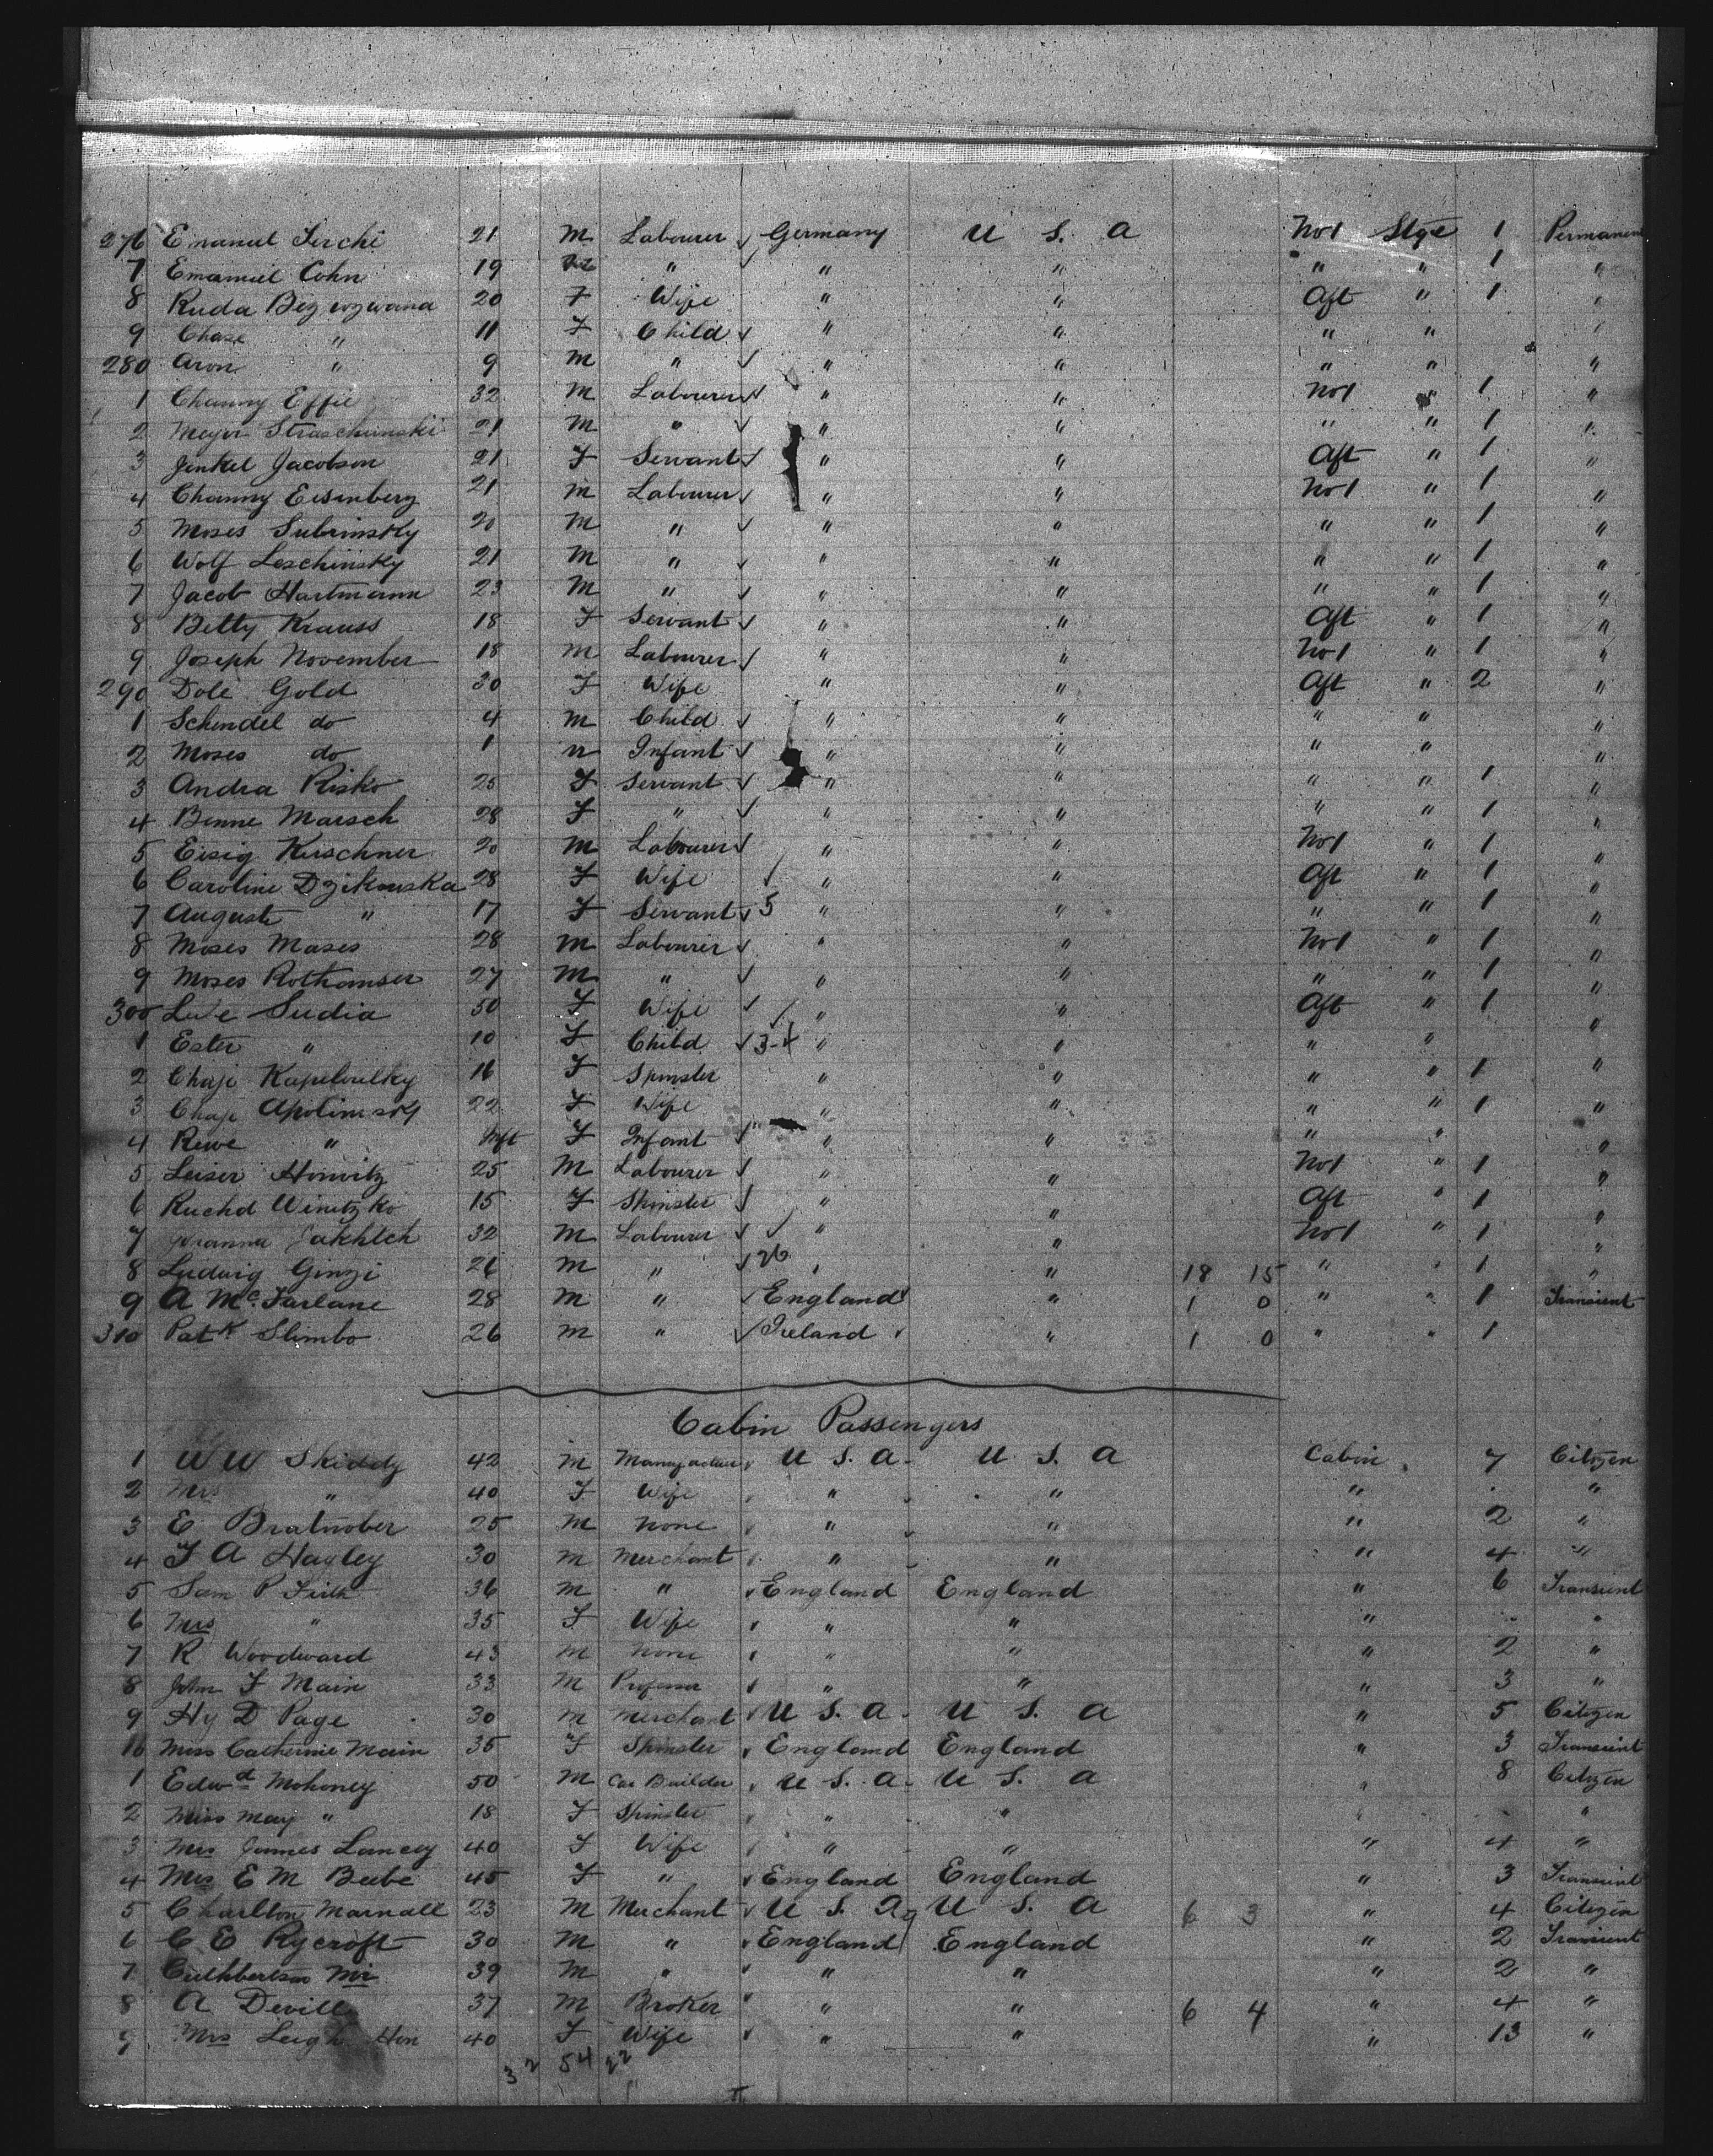 276 Emanuel Ferchi 21 M Labourer Germany U S. A No 1 Stge 1 Permanent
7 Emanuel Cohn 19 M " " " " " 1 "
8 Ruda 20 F Wife " " Aft " 1 "
9 Chase " 11 F Child " " " " "
280 Aron " 9 M " " " " " "
1 Channy Effie 32 M Labourer " " No 1 " 1 "
2 Meyer Straschunski 21 M " " " " " 1 "
3 Jenkel Jacobson 21 F Servant " " Aft " 1 "
4 Channy Eisenberg 21 M Labourer " " No 1 " 1 "
5 Moses Subrinsky 20 M " " " " " 1 "
6 Wolf Leschinsky 21 M " " " " " 1 "
7 Jacob Hartmann 23 M " " " " " 1 "
8 Betty Krauss 18 F Servant " " Aft " 1 "
9 Joseph November 18 M Labourer " " No 1 " 1 "
290 Dole Gold 30 F Wife " " Aft " 2 "
1 Schendel do 4 M Child " " " " "
2 Moses do 1 Infant " " " " "
3 Andra Risko 25 F Servant " " " " 1 "
4 Benne Marsch 28 F " " " " " 1 "
5 Eisig Kirschner 20 M Labourer " " No 1 " 1 "
6 Caroline Dzikowska 28 F Wife " " Aft " 1 "
7 Auguste " 17 F Servant 5 " " " " 1 "
8 Moses Mases 28 M Labourer " " No 1 " 1 "
9 Moses Rothauser 27 M " " " " " 1 "
300 Sudia 50 F Wife " " Aft " 1 "
1 Ester " 10 F Child 3-4 " " " " "
2 Chaje 16 F Spinster " " " " 1 "
3 Chaje 22 F Wife " " " " 1 "
4 Rewe " Inft F Infant " " " " "
5 Leiser Horwitz 25 M Labourer " " No 1 " 1 "
6 15 F Spinster " " Aft " 1 "
7 32 M Labourer " " No 1 " 1 "
8 Ludwig Ginzi 26 M " 26 " " 18 15 " " 1 "
9 A McFarlane 28 M " England " 1 0 " " 1 Transient
310 Patk Slimbo 26 M " Ireland " 1 0 " " 1
Cabin Passengers
1 W W Skiddy 42 M Manufacturer U S. A. U. S. A Cabin 7 Citizen
2 Mrs " 40 F Wife " " " "
3 E Bratnober 25 M None " " " 2 "
4 F A Hayley 30 M Merchant " " " 4 "
5 Sam P Firth 36 M " England England " 6 Transient
6 Mrs " 35 F Wife " " " "
7 R Woodward 43 M None " " " 2 "
8 John F Main 33 M Professor " " " 3 "
9 Hy D Page 30 M Merchant U S. A. U S. A " 5 Citizen
10 Miss Catherine Main 35 F Spinster England England " 3 Transient
1 Edwd Mohoney 50 M Car Builder U S. A. U S. A " 8 Citizen
2 Miss May " 18 F Spinster " " " "
3 Mrs James Lancey 40 F Wife " " " 4 "
4 Mrs E M Beebe 45 F " England England " 3 Transient
5 Charlton Marnall 23 M Merchant U S. A U S. A 6 3 " 4 Citizen
6 C E Rycroft 30 M " England England " 2 Transient
7 Cuthbertson Mr 39 M " " " " 2 "
8 A Deville 37 M Broker " " 6 4 " 4 "
9 Mrs Leigh Hon 40 F Wife " " " 13 "
32 54 22